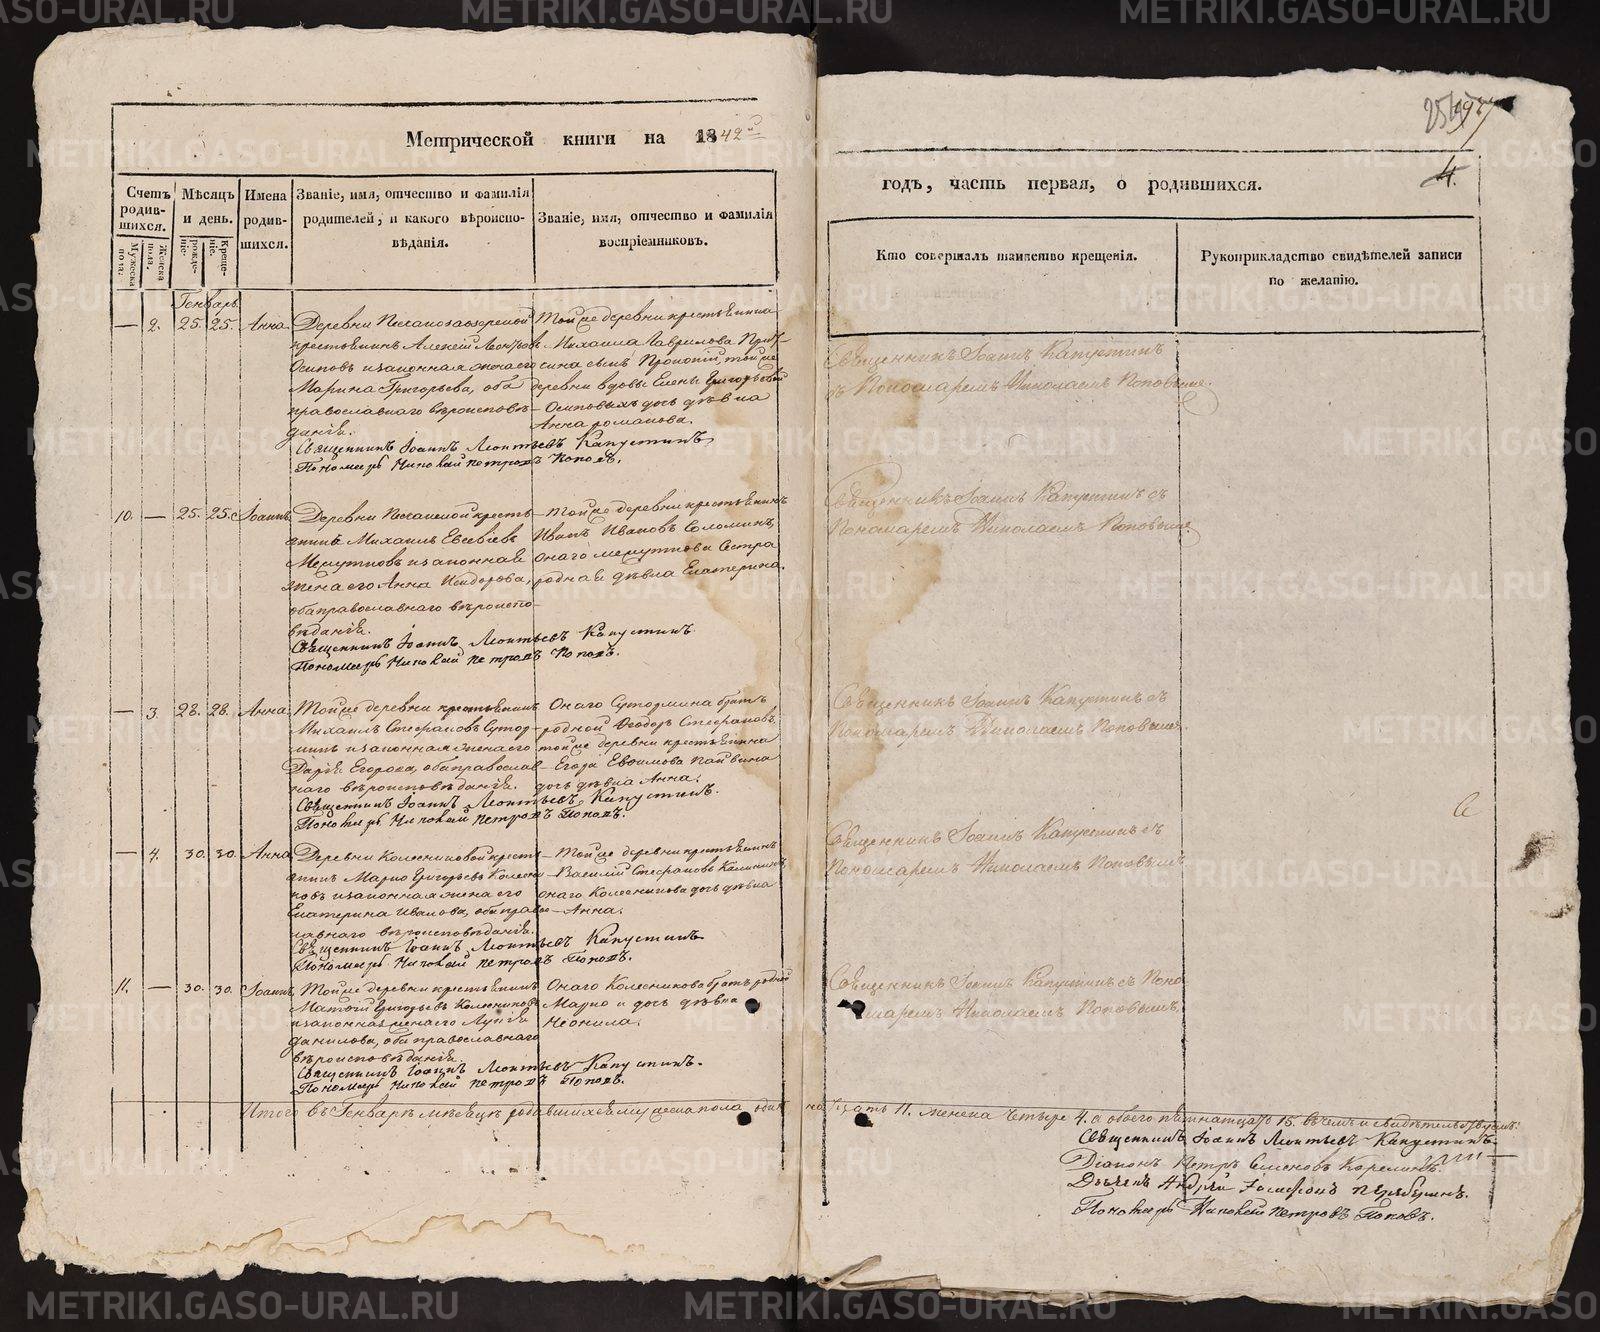 Метрической книги на 1842й
Счетъ родив-шихся.
Мужеска пола.
Женска пола.
Мѣсяцъ и день.
рожде-ніе.
креще-ніе.
Имена родив-шихся.
Званіе, имя, отчество и фамилія
родителей, и какого вѣроиспо-
вѣданія.
Званіе, имя, отчество и фамилія
воспріемниковъ.
Генварь.
— 2. 25. 25. Анна.
крестьянинъ Алексѣй
Осиповъ и законная жена его
Марина Григорьева, оба
православнаго вѣроисповѣ-
данія.
Тойже деревни крестьянина
Михаила Гаврилова
сына сынъ Прокопій, тойже
деревни вдовы Елены Григорьевой
Осиповыхъ дочь дѣвка
Анна Романова.
Священникъ Іоаннъ Леонтьевъ Капустинъ
Пономарь Николай Петровъ Поповъ.
10. — 25. 25. Іоаннъ
янинъ Михаилъ Евсевіевъ
и законная
жена его Анна Исидорова,
оба православнаго вѣроиспо-
вѣданія.
Тойже деревни крестьянинъ
Иванъ Ивановъ Соломинъ,
онаго сестра
родная дѣвка Екатерина.
Священникъ Іоаннъ Леонтьевъ Капустинъ
Пономарь Николай Петровъ Поповъ.
— 3. 28. 28. Анна.
Тойже деревни крестьянинъ
Михаилъ Стефановъ Сутор-
минъ и законная жена его
Дарія Егорова, оба православ-
наго вѣроисповѣданія.
Онаго Сутормина братъ
родной Ѳеодоръ Стефановъ,
тойже деревни крестьянина
Егора Евфимова
дочь дѣвка Анна.
Священникъ Іоаннъ Леонтьевъ Капустинъ.
Пономарь Николай Петровъ Поповъ.
— 4. 30. 30. Анна
Деревни Колесниковой кресть-
янинъ Марко Григорьевъ Колесни-
ковъ и законная жена его
Екатерина Иванова, оба право-
славнаго вѣроисповѣданія.
Тойже деревни крестьянинъ
Василій Стефановъ
онаго Колесникова дочь дѣвка
Анна.
Священникъ Іоаннъ Леонтьевъ Капустинъ
Пономарь Николай Петровъ Поповъ.
11. — 30. 30. Іоаннъ,
Тойже деревни крестьянинъ
Матѳій Григорьевъ Колесниковъ
и законная жена его Лукія
Данилова, оба православнаго
вѣроисповѣданія.
Онаго Колесникова братъ родной
Марко и дочь дѣвка
Неонила.
Священникъ Іоаннъ Леонтьевъ Капустинъ.
Пономарь Николай Петровъ Поповъ.
Итого въ Генварѣ мѣсяцѣ родившихся мужеска пола одиннадцать 11. женска четыре 4. а обоего пятнатцать 15. въ чемъ и свидѣтельствуемъ:
Священникъ Іоаннъ Леонтьевъ Капустинъ
Діаконъ Петръ Семеновъ Карелинъ
Пономарь Николай Петровъ Поповъ.
4.
годъ, часть первая, о родившихся.
Кто совершалъ таинство крещенія.
Рукоприкладство свидѣтелей записи
по желанію.
Священникъ Іоаннъ Капустинъ
съ Пономаремъ Николаемъ Поповымъ.
Священникъ Іоаннъ Капустинъ съ
Пономаремъ Николаемъ Поповымъ.
Священникъ Іоаннъ Капустинъ съ
Пономаремъ Николаемъ Поповымъ.
Священникъ Іоаннъ Капустинъ съ
Пономаремъ Николаемъ Поповымъ.
Священникъ Іоаннъ Капустинъ съ Поно-
маремъ Николаемъ Поповымъ.
METRIKI.GASO-URAL.RU